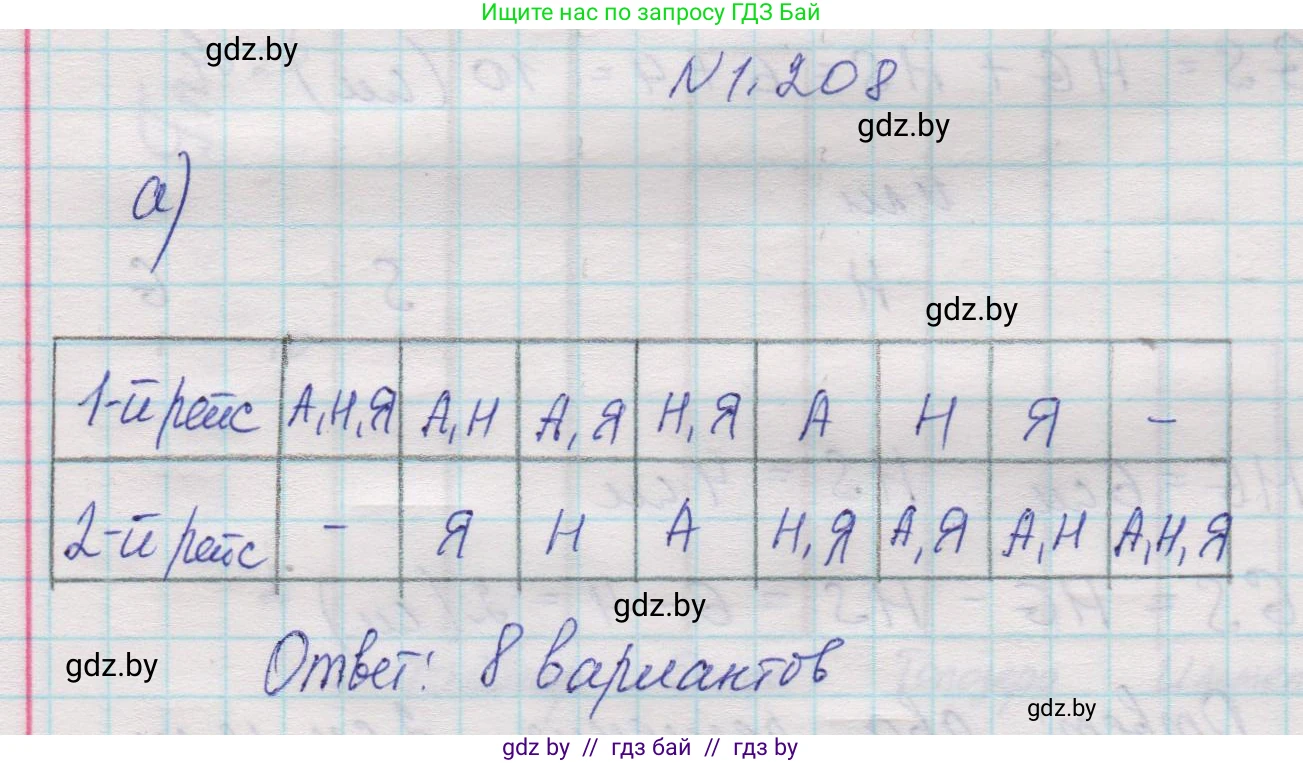 Ищите нас по запросу ГДЗ Бай
gdz.by
N 1.208
gdz.by
а)
gdz.by
1-й рейс А,Н,Я А,Н А,Я Н,Я А Н Я –
2-й рейс – Я Н А Н,Я А,Я А,Н А,Н,Я
gdz.by
Ответ: 8 вариантов
gdz.by
gdz.by
gdz by // гдз бай // гдз by